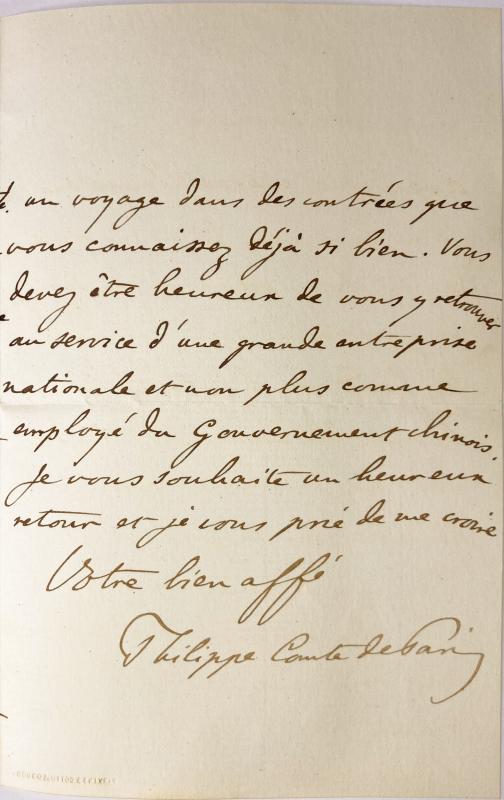 un voyage dans des contrées que
vous connaissez déjà si bien. Vous
devez être heureux de vous y retrouver
au service d'une grande entreprise
nationale et non plus comme
employé du Gouvernement chinois.
Je vous souhaite un heureux
retour et je vous prie de me croire
Votre bien affé
Philippe Comte de Paris